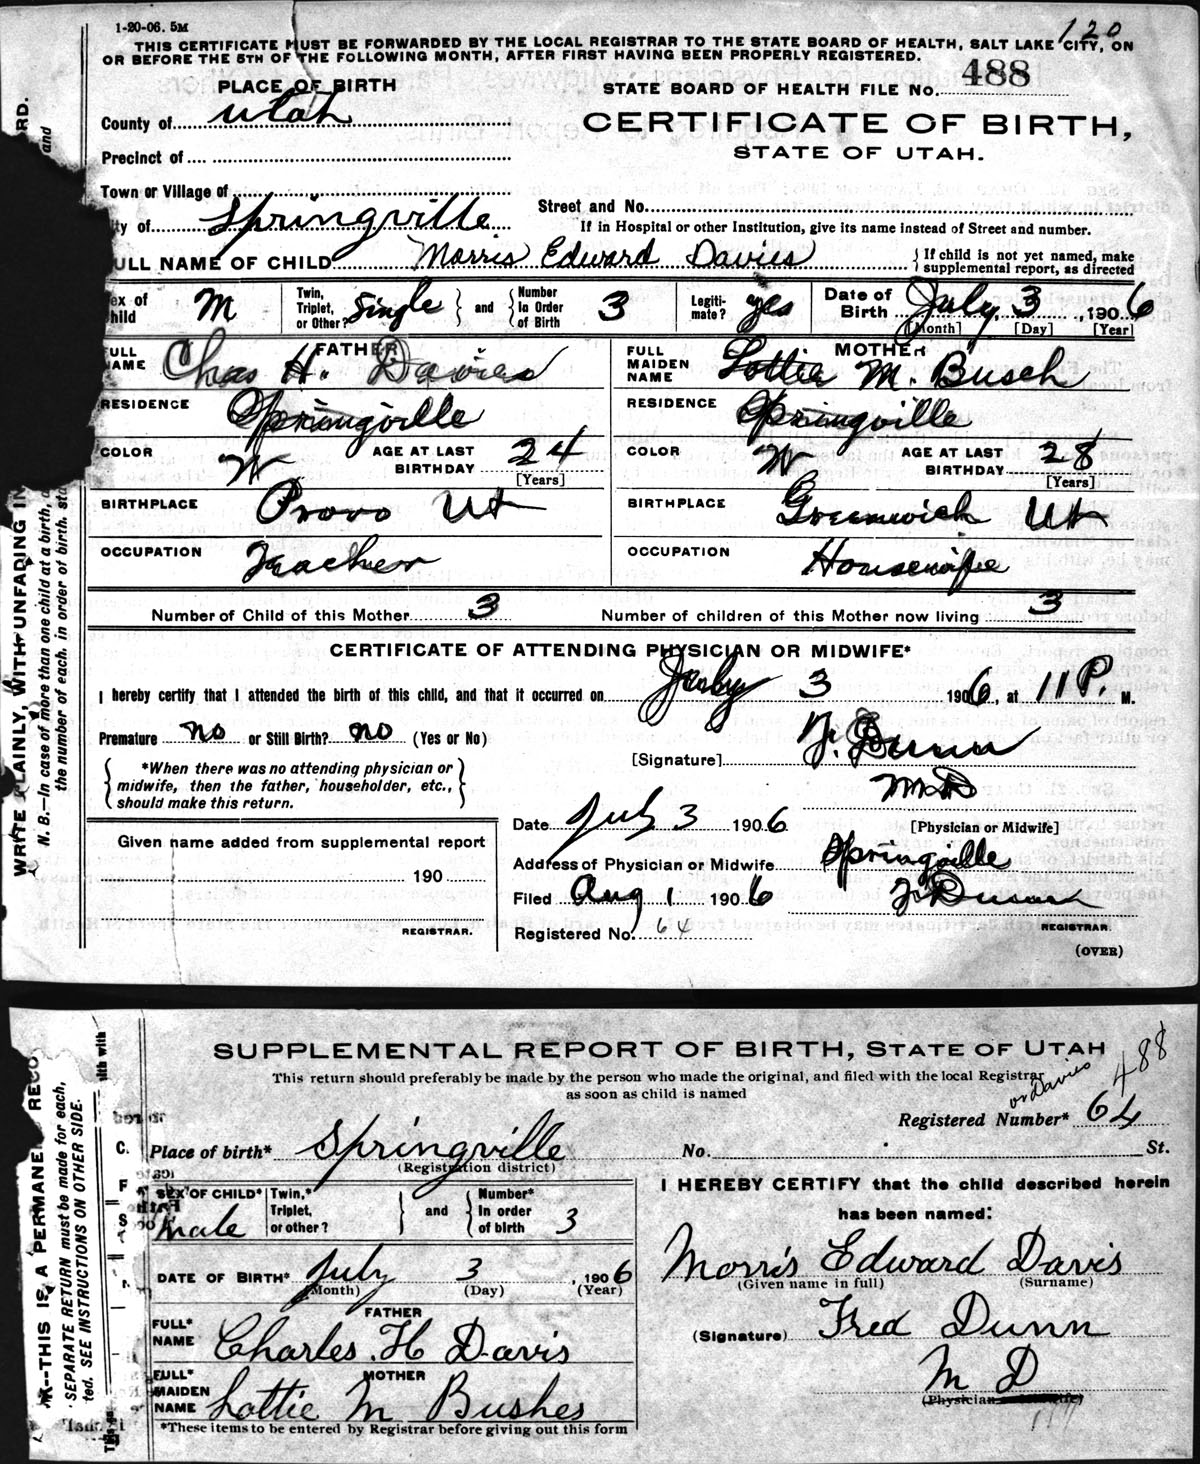 1-20-06. 5M
120
THIS CERTIFICATE MUST BE FORWARDED BY THE LOCAL REGISTRAR TO THE STATE BOARD OF HEALTH, SALT LAKE CITY, ON
OR BEFORE THE 5TH OF THE FOLLOWING MONTH, AFTER FIRST HAVING BEEN PROPERLY REGISTERED.
PLACE OF BIRTH
STATE BOARD OF HEALTH FILE No. 488
County of Utah
CERTIFICATE OF BIRTH,
STATE OF UTAH.
Precinct of
Town or Village of
Street and No.
ty of Springville
If in Hospital or other Institution, give its name instead of Street and number.
ULL NAME OF CHILD Morris Edward Davies
If child is not yet named, make
supplemental report, as directed
ex of
hild M
Twin,
Triplet,
or Other? Single
and
Number
In Order
of Birth 3
Legiti-
mate? yes
Date of
Birth July 3, 1906
[Month] [Day] [Year]
FATHER
FULL
NAME Chas H. Davies
RESIDENCE Springville
COLOR W
AGE AT LAST
BIRTHDAY 24
[Years]
BIRTHPLACE Provo Ut
OCCUPATION Teacher
MOTHER
FULL
MAIDEN
NAME Lottie M. Busch
RESIDENCE Springville
COLOR W
AGE AT LAST
BIRTHDAY 28
[Years]
BIRTHPLACE Greenwich Ut
OCCUPATION Housewife
Number of Child of this Mother 3
Number of children of this Mother now living 3
CERTIFICATE OF ATTENDING PHYSICIAN OR MIDWIFE*
I hereby certify that I attended the birth of this child, and that it occurred on July 3 1906, at 11 P. M.
Premature no or Still Birth? no (Yes or No)
[Signature] F. Dunn
MD
[Physician or Midwife]
*When there was no attending physician or
midwife, then the father, householder, etc.,
should make this return.
Date July 3 1906
Address of Physician or Midwife Springville
Given name added from supplemental report
190
REGISTRAR.
Filed Aug 1 1906 F. Dunn
REGISTRAR.
Registered No. 64
(OVER)
RD.
and
WRITE PLAINLY, WITH UNFADING IN
N. B.—In case of more than one child at a birth, a
the number of each, in order of birth, sta
SUPPLEMENTAL REPORT OF BIRTH, STATE OF UTAH
This return should preferably be made by the person who made the original, and filed with the local Registrar
as soon as child is named
or Davies
488
Registered Number* 64
Place of birth* Springville
(Registration district)
No. St.
SEX OF CHILD*
Male
Twin,*
Triplet,
or other?
and
Number*
In order
of birth 3
DATE OF BIRTH* July 3, 1906
(Month) (Day) (Year)
FATHER
FULL*
NAME Charles H Davis
MOTHER
FULL*
MAIDEN
NAME Lottie M Bushes
*These items to be entered by Registrar before giving out this form
I HEREBY CERTIFY that the child described herein
has been named:
Morris Edward Davis
(Given name in full) (Surname)
(Signature) Fred Dunn
M D
(Physician
--THIS IS A PERMANE RECO
SEPARATE RETURN must be made for each,
ted. SEE INSTRUCTIONS ON OTHER SIDE.